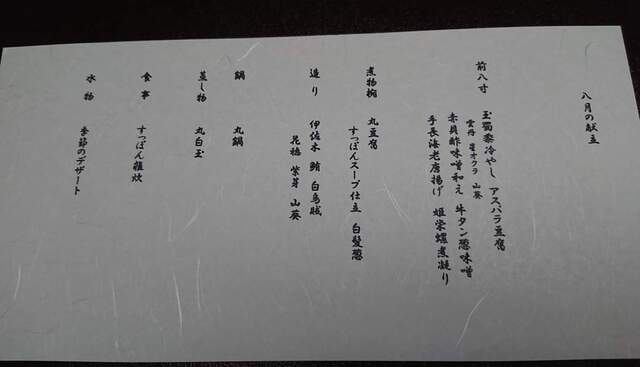 八月の献立
前八寸 玉蜀黍冷やし アスパラ豆腐
雲丹 星オクラ 山葵
赤貝酢味噌和え 牛タン葱味噌
手長海老唐揚げ 姫栄螺煮凝り
煮物椀 丸豆腐
すっぽんスープ仕立 白髪葱
造り 伊佐木 鮪 白烏賊
花穂 紫芽 山葵
鍋 丸鍋
蒸し物 丸白玉
食事 すっぽん雑炊
水物 季節のデザート